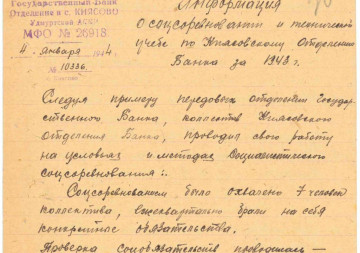 Государственный Банк
Отделение в с. КИЯСОВО
Удмуртской АССР
МФО № 26918
4 января 1944
№ 10336.
Информация
О соцсоревновании и технической
учебе по Киясовскому Отделению
Банка за 1943 г.
Следуя примеру передовых отделений Государ-
ственного Банка, коллектив Киясовского
отделения Банка, проводил свою работу
на условиях и методах Социалистического
соцсоревнования:.
Соцсоревнованием было охвачено 7 человек
коллектива, ежеквартально брали на себя
конкретные обязательства.
Проверка соцобязательств проводилась —